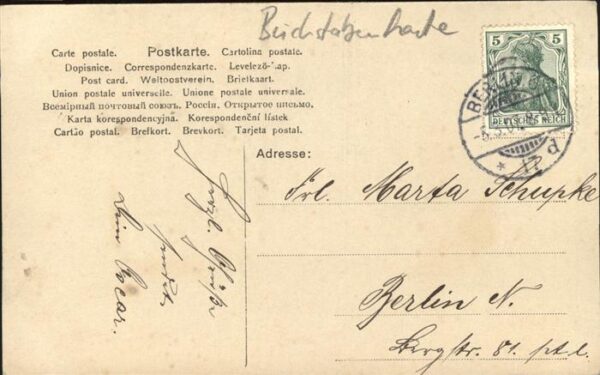 Buchstabenkarte
Carte postale. Postkarte. Cartolina postale.
Dopisnice. Correspondenzkarte. Levelező-lap.
Post card. Weltpostverein. Briefkaart.
Union postale universelle. Unione postale universale.
Всемірный почтовый союзъ. Россія. Открытое письмо.
Karta korespondencyjna. Korespondenční lístek
Cartão postal. Brefkort. Brevkort. Tarjeta postal.
5 5
DEUTSCHES REICH
BERLIN
17 d
Adresse:
Frl. Marta Schupke
Berlin N.
81. ptl.
Herzl. Grüße
sendet
Dein Oscar.